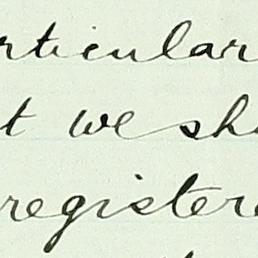 rticular
t we sh
registere